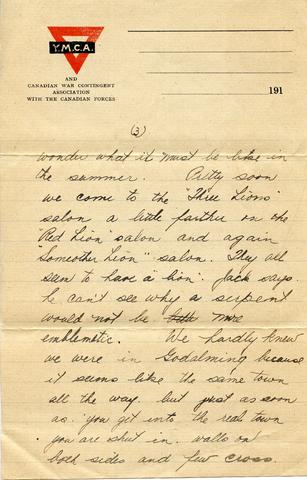 Y.M.C.A.
AND
CANADIAN WAR CONTINGENT
ASSOCIATION
WITH THE CANADIAN FORCES
191
(3)
wonder what it must be like in
the summer. Pretty soon
we come to the "Three Lions"
salon a little farther on the
"Red Lion" salon and again
"Someother Lion" salon. They all
seem to have a "lion". Jack says
he can't see why a serpent
would not be more
emblematic. We hardly knew
we were in Godalming because
it seems like the same town
all the way. but just as soon
as you get into the real town
you are shut in. walls on
both sides and few cross